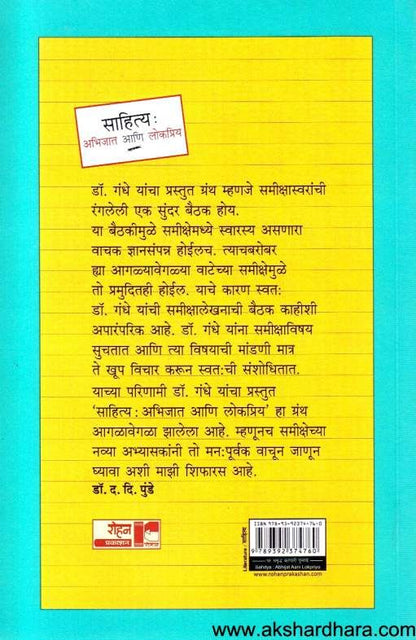 साहित्य :
अभिजात आणि लोकप्रिय
डॉ. गंधे यांचा प्रस्तुत ग्रंथ म्हणजे समीक्षास्वरांची
रंगलेली एक सुंदर बैठक होय.
या बैठकीमुळे समीक्षेमध्ये स्वारस्य असणारा
वाचक ज्ञानसंपन्न होईलच. त्याचबरोबर
ह्या आगळ्यावेगळ्या वाटेच्या समीक्षेमुळे
तो प्रमुदितही होईल. याचे कारण स्वत:
डॉ. गंधे यांची समीक्षालेखनाची बैठक काहीशी
अपारंपरिक आहे. डॉ. गंधे यांना समीक्षाविषय
सुचतात आणि त्या विषयाची मांडणी मात्र
ते खूप विचार करून स्वत:ची संशोधितात.
याच्या परिणामी डॉ. गंधे यांचा प्रस्तुत
‘साहित्य : अभिजात आणि लोकप्रिय’ हा ग्रंथ
आगळावेगळा झालेला आहे. म्हणूनच समीक्षेच्या
नव्या अभ्यासकांनी तो मन:पूर्वक वाचून जाणून
घ्यावा अशी माझी शिफारस आहे.
डॉ. द. दि. पुंडे
रोहन
प्रकाशन
Literature / साहित्य
ISBN 978-93-92374-76-0
9 789392 374760
Sahitya : Abhijat Aani Lokpriya
www.rohanprakashan.com
www.akshardhara.com